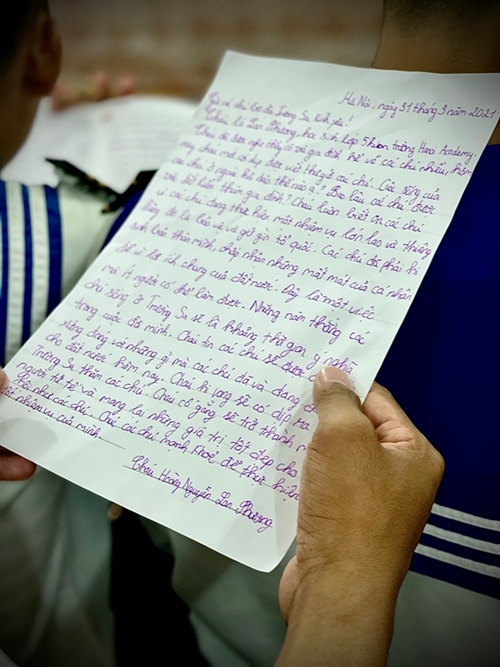 Hà Nội, ngày 31 tháng 3 năm 2021
các chú bộ đội Trường Sa kính yêu!
Cháu là Lan Phương, học sinh lớp 5 trường Hanoi Academy.
Cháu đã được nghe thầy cô và gia đình kể về các chú nhiều, hôm
nay cháu mới có dịp được viết thư gửi các chú. Cuộc sống của
các chú ở ngoài đó dạo thế nào ạ? Bao lâu các chú được
về đất liền thăm gia đình? Cháu luôn biết ơn các chú
vì các chú đang thực hiện một nhiệm vụ lớn lao và thiêng
liêng đó là bảo vệ và giữ gìn tổ quốc. Các chú đã phải hi
sinh bản thân mình, chấp nhận những mất mát của cá nhân
để vì lợi ích chung của đất nước. Đây là một việc
mà ít người có thể làm được. Những năm tháng các
chú sống ở Trường Sa sẽ là khoảng thời gian ý nghĩa
trong cuộc đời mình. Cháu tin các chú sẽ được
xứng đáng với những gì mà các chú đã và đang
cho đất nước hôm nay. Cháu hi vọng sẽ có dịp ra
Trường Sa thăm các chú. Cháu cố gắng sẽ trở thành
người tử tế và mang lại những giá trị tốt đẹp cho
như các chú. Chúc các chú mạnh khoẻ để thực hiện
nhiệm vụ của mình.
Cháu Hoàng Nguyễn Lan Phương